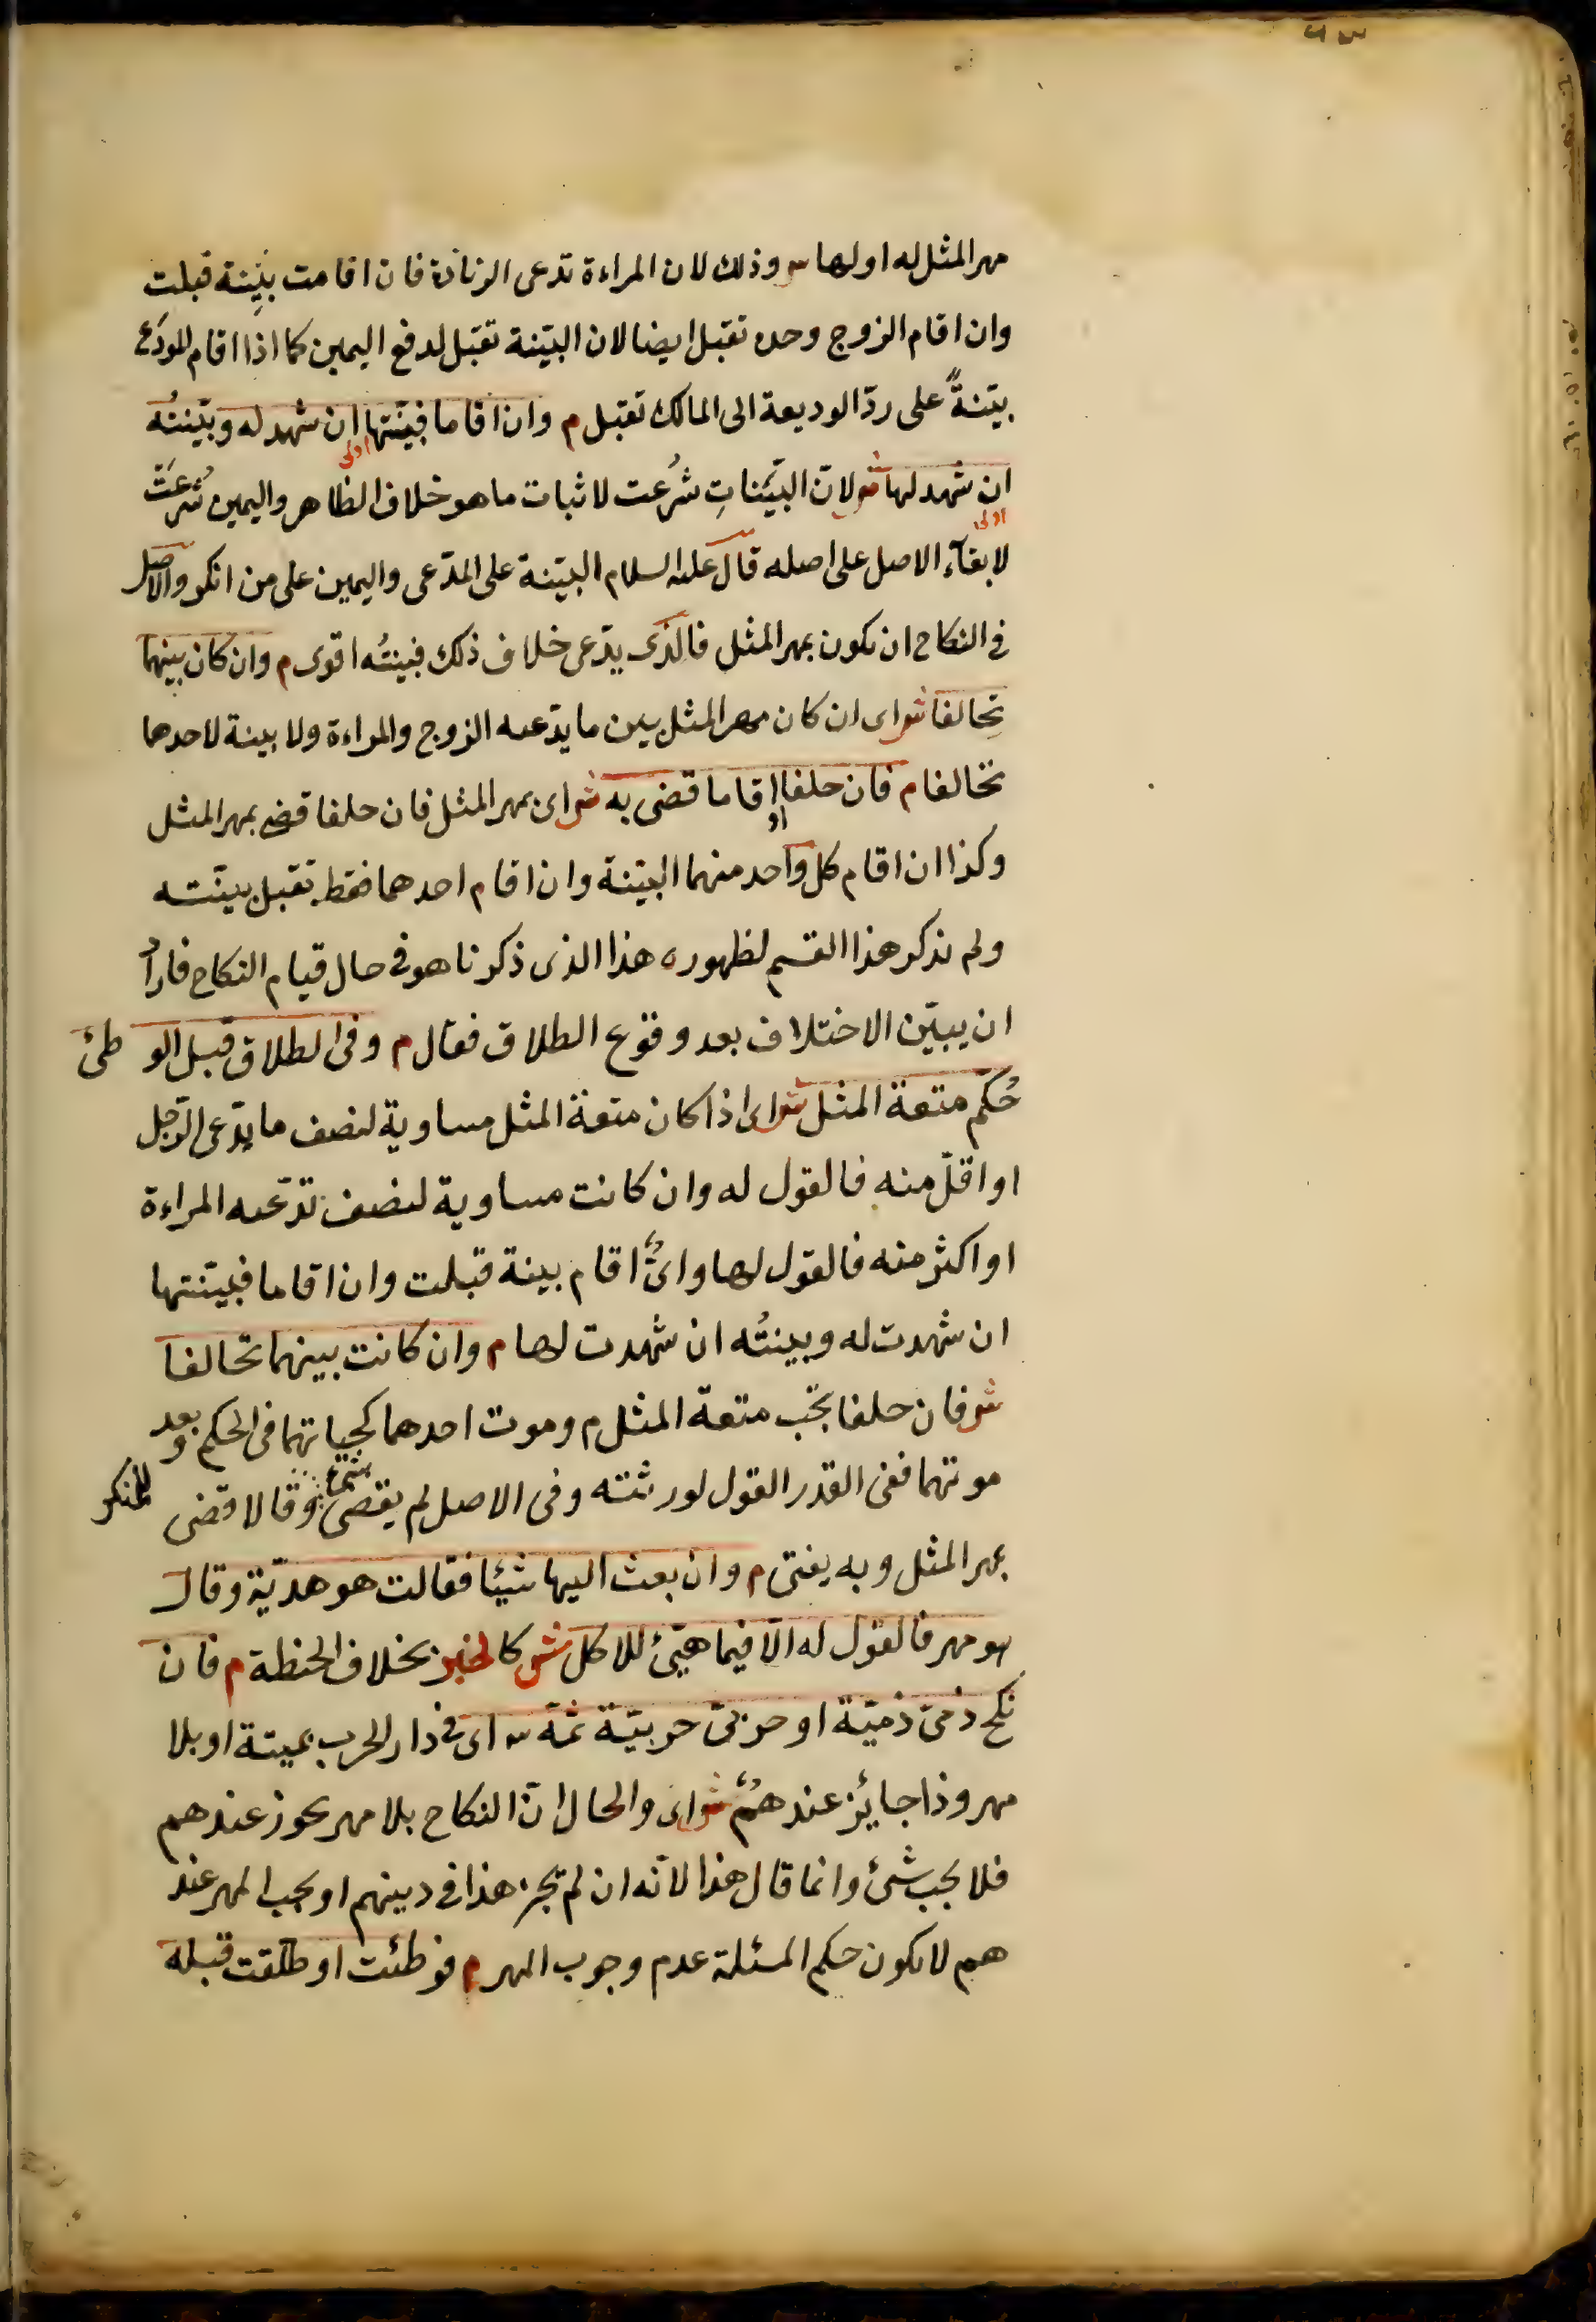 مهر المثل له او لها ش وذلك لان المراءة تدعى الزيادة فان اقامت بيّنة قبلت
وان اقام الزوج وحده تقبل ايضا لان البيّنة تقبل لدفع اليمين كما اذا اقام المودَع
بيّنةً على ردّ الوديعة الى المالك تقبل م وان اقاما فبيّنتها ان شهد له وبيّنتُه
اولى
ان شهد لها ش لانّ البيّنات شُرعت لاثبات ما هو خلاف الظاهر واليمين شُرعَتْ
اولى
لابقآء الاصل على اصله قال عليه السلام البيّنة على المدّعى واليمين على من انكر والاصل
فى النكاح ان يكون بمهر المثل فالذى يدّعى خلاف ذلك فبينتُه اقوى م وان كان بينهما
تحالفا ش اى ان كان مهر المثل بين ما يدّعيه الزوج والمراءة ولا بينة لاحدهما
تحالفا م فان حلفا او اقاما قضى به ش اى بمهر المثل فان حلفا قضى بمهر المثل
وكذا ان اقام كل واحد منهما البيّنة وان اقام احدهما فقط تقبل بيّنته
ولم يذكر هذا القسم لظهوره هذا الذى ذكرنا هو فى حال قيام النكاح فارادَ
ان يبيّن الاختلاف بعد وقوع الطلاق فقال م وفى الطلاق قبل الوطئ
حُكّم متعة المثل ش اى اذا كان متعة المثل مساوية لنصف ما يدّعى الرّجل
او اقلّ منه فالقول له وان كانت مساوية لنصف تدّعيه المراءة
او اكثر منه فالقول لها واىٌّ اقام بينة قبلت وان اقاما فبيّنتها
ان شهدت له وبينتُه ان شهدت لها م وان كانت بينهما تحالفا
ش فان حلفا يجب متعة المثل م وموت احدهما كحياتهما فى الحكم وبعد
موتهما ففى القدر القول لورثته وفى الاصل لم يقض بشئ وقالا قضى
للمنكر
بمهر المثل وبه يفتى م وان بعث اليها شيئا فقالت هو هديّة وقال
هو مهر فالقول له الّا فيما هيّئ للاكل ش كالخبز بخلاف الحنطة م فان
نكح ذمىّ ذميّة او حربىّ حربيّة ثمّة ش اى فى دار الحرب بميتة او بلا
مهر وذا جايز عندهُمْ ش اى والحال انّ النكاح بلا مهر يجوز عندهم
فلا يجب شئ وانما قال هذا لانّه ان لم يجز هذا فى دينهم او يجب المهر عند
هم لا يكون حكم المسئلة عدم وجوب المهر م فوطئت او طلّقت قبله